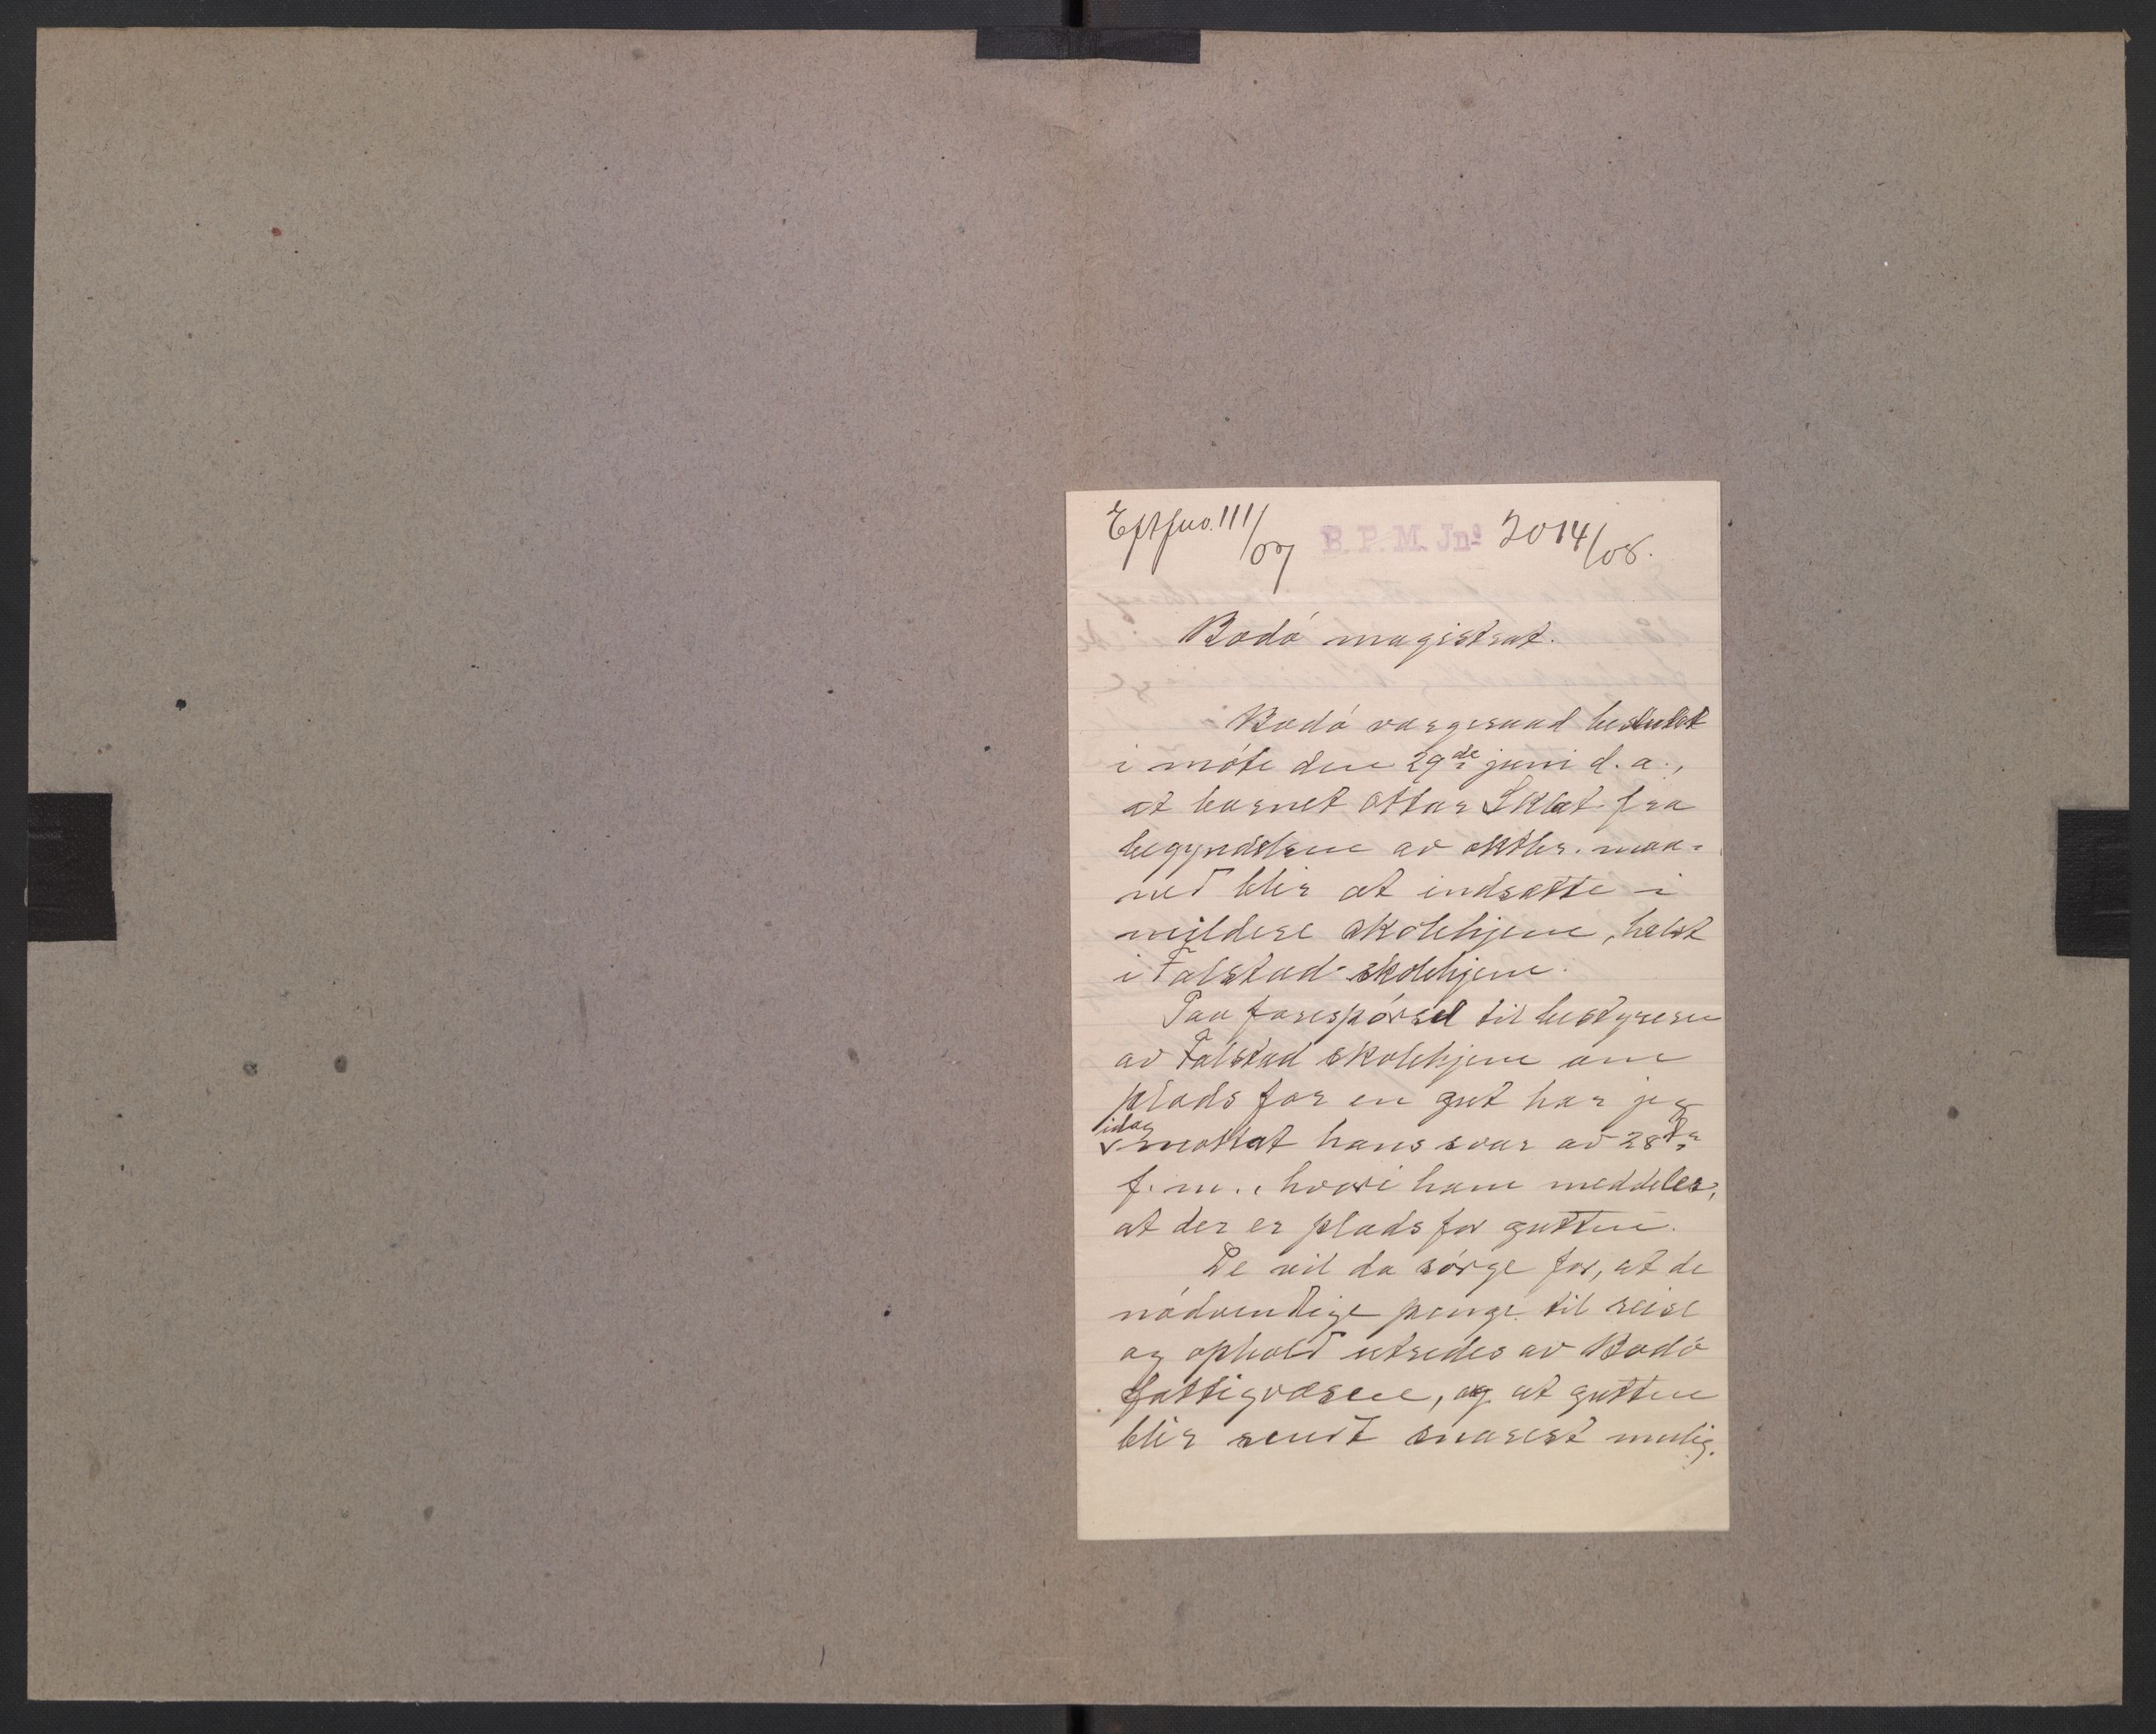 Eft jno. 111/07 B. P. M. Jnº 2014/08.
Bodó magistrat.
Bodó vergeraad besluttet
i móte den 29de juni d. a.,
at barnet Ottar fra
begyndelsen av oktbr. maa-
ned blir at indsætte i
mildere skolehjem, helst
i Falstad skolehjem.
Paa forespórsel til bestyreren
av Falstad skolehjem om
plads for en gut har jeg
idag mottat hans svar av 28de
f. m., hvori han meddeler,
at der er plads for gutten.
De vil da sórge for, at de
nódvendige penge til reise
og ophold utredes av Bodó
fattigvæsen, og at gutten
blir sendt snarest mulig.